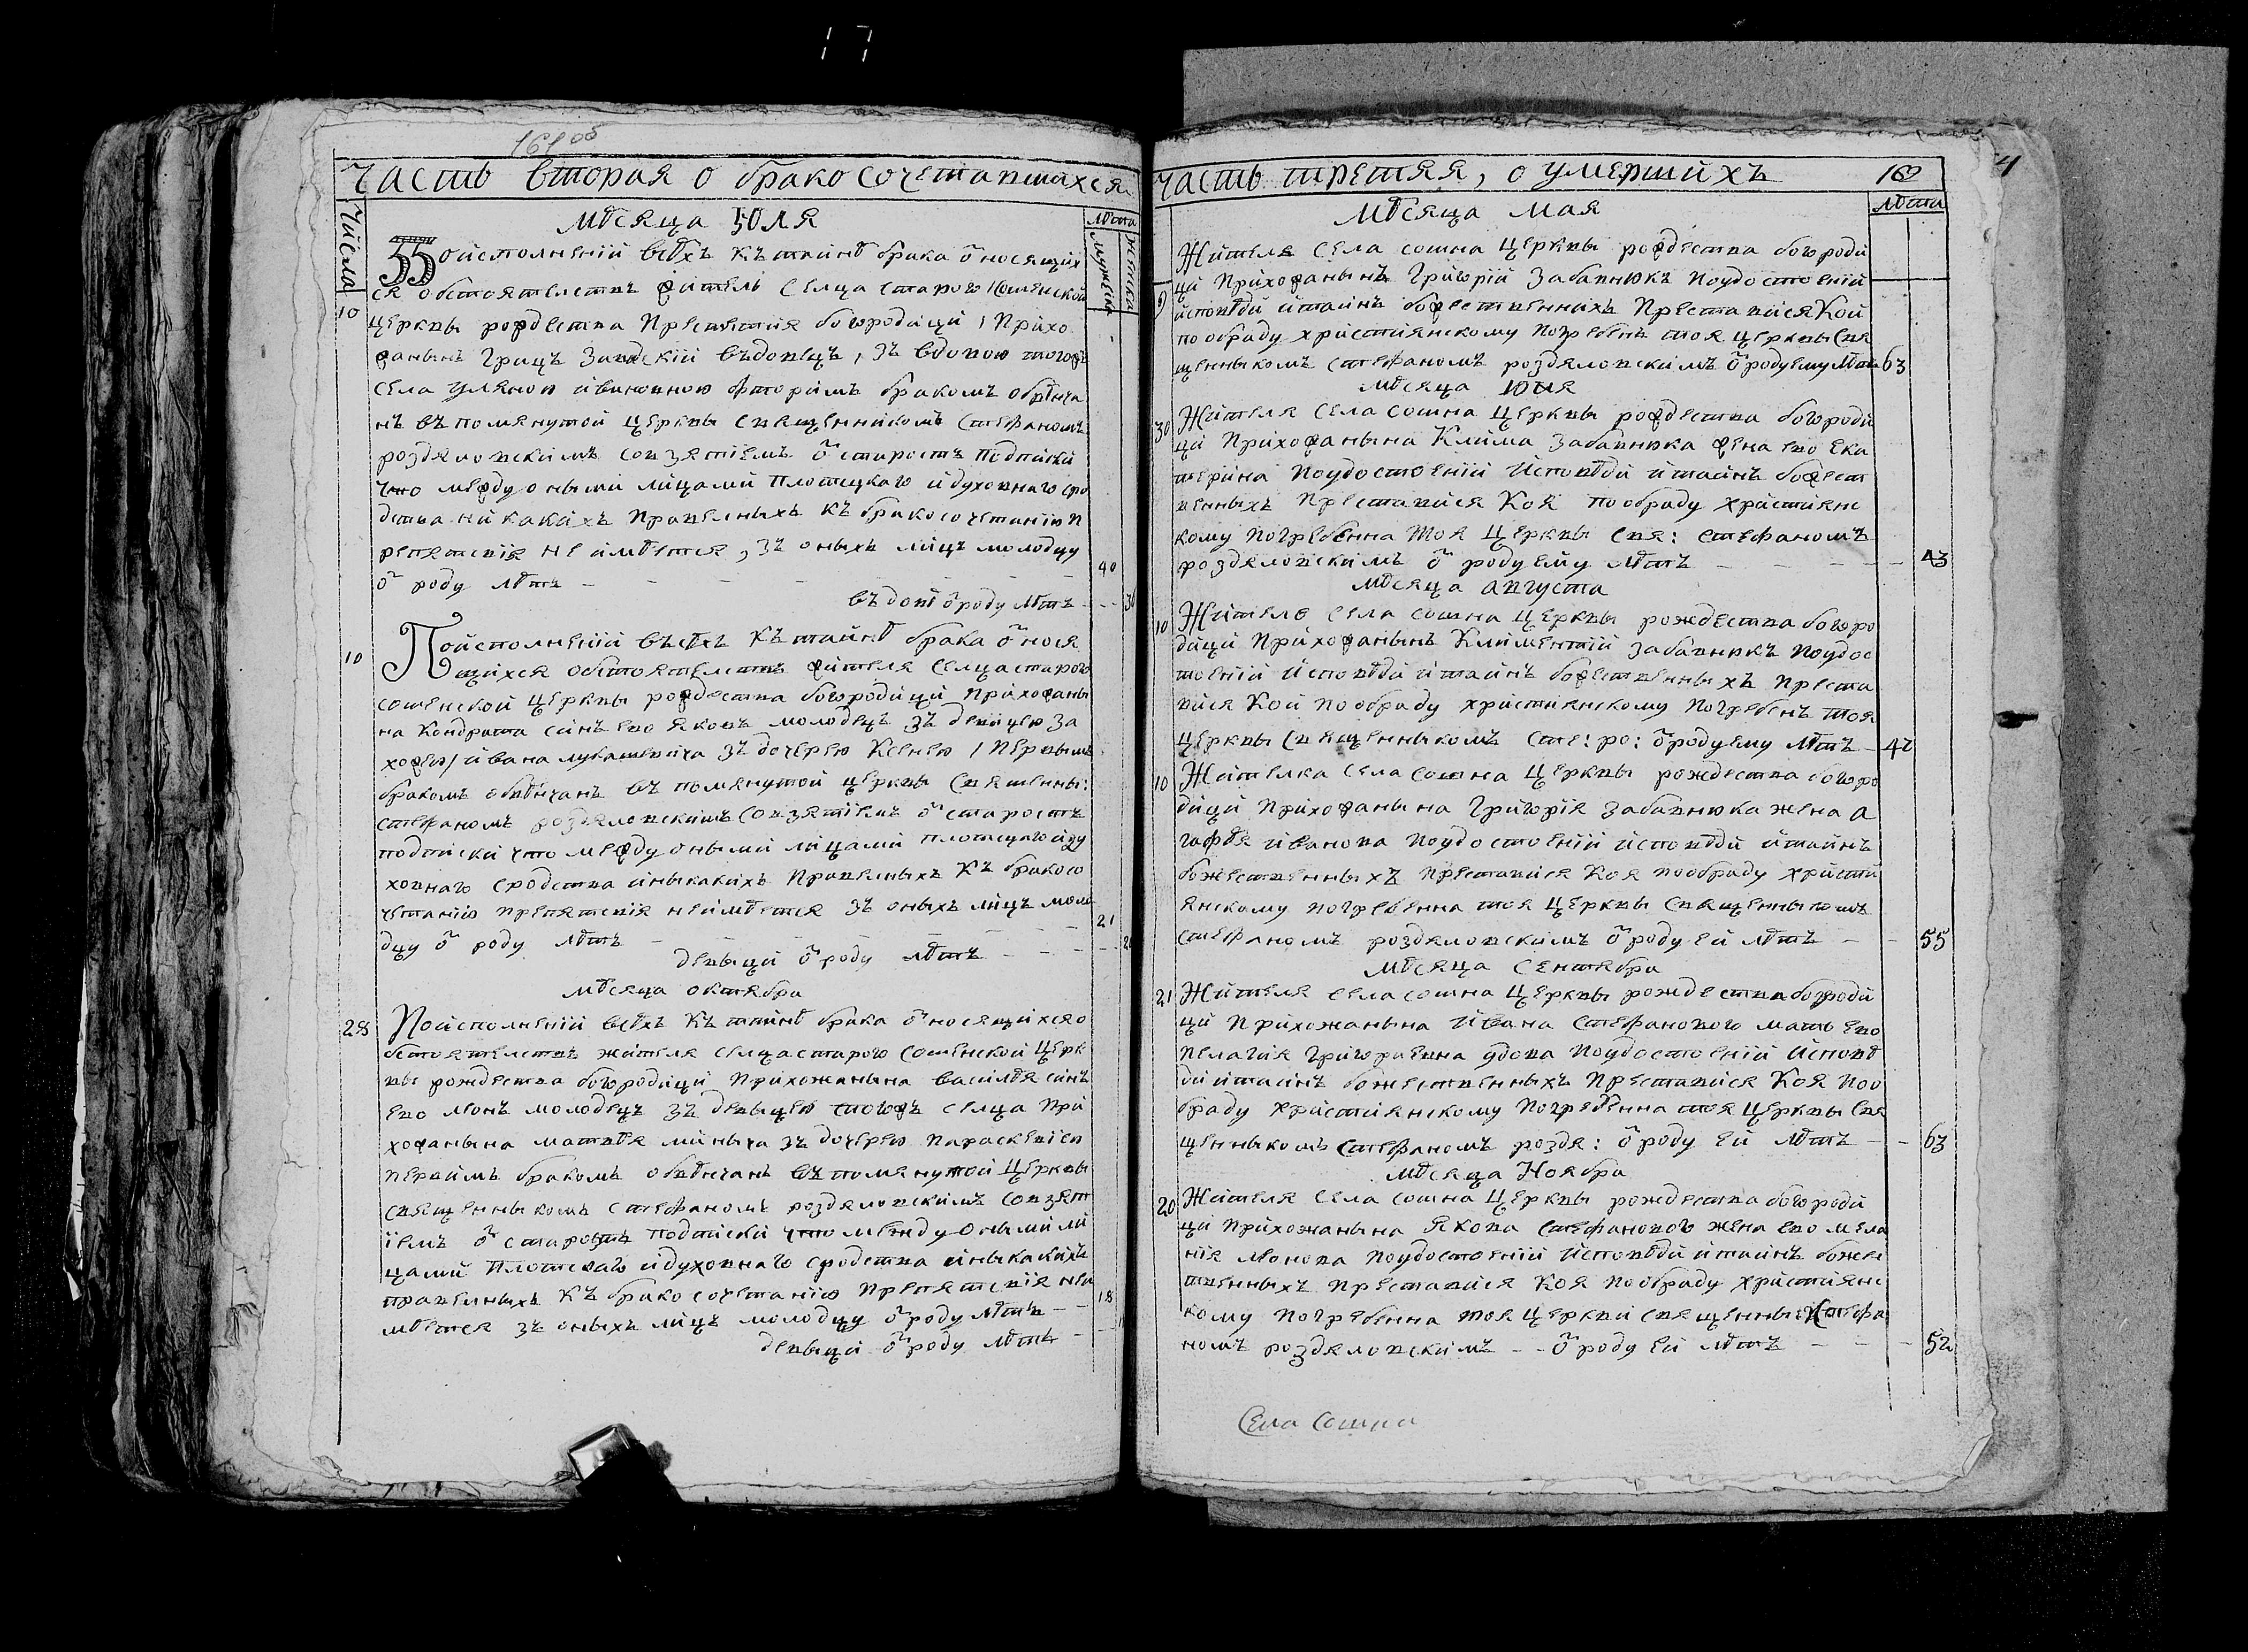 17
161об
Часть вторая о бракосочетавшихся
Числа
Лѣта
Мужеска
Женска
Мѣсяца Юля
По исполненій всѣхъ къ тайнѣ брака ѿносящих
ся обстоятелствъ житель селца старого Сошенской
10
церквы рождества Пресветія богородици Прихо
жанынъ Грицъ въдовецъ, зъ вдовою тогожъ
села Уляною Ивановною фторимъ бракомъ обвѣнча
нъ въ помянутой церквы священнікомъ Стефаномъ
роздяловскимъ совзятіемъ ѿ старостъ подпіски
что между оными лицами плотцкаго и духовнаго сро
дства ни какихъ Правелныхъ къ бракосочетанію п
репятсвія не имѣется, зъ оныхъ лицъ молодцу
ѿ роду лѣтъ - - - - - - - 40
въдовѣ ѿ роду лѣтъ - - -
10
По исполненій въсѣхъ къ тайнѣ брака ѿнося
щихся обстоятелствъ жителя селца старого
сошенской церквы рождества богородици прихожаны
на Кондрата синъ его Яковъ молодецъ зъ девицею за
хожею Ивана Лукашевича зъ дочерею Ксенею Первымъ
бракомъ обвѣнчанъ въ помянутой церквы священны:
стефаномъ роздяловскимъ совзятіемъ ѿ старостъ
подписки что между оными лицами плотцкаго иду
ховнаго сродства иныкакихъ Правелныхъ къ бракосо
четанію препятсвія неимѣется зъ оныхъ лицъ моло
дцу ѿ роду лѣтъ - - - - - - - 21
девыци ѿ роду лѣтъ - - - - 20
мѣсяца октября
28
По исполненій всѣхъ къ тайнѣ брака ѿносящихся о
бстоятелствъ жителя селца старого Сошенской церк
вы рождества богородици Прихожанына василѣя синъ
его леонъ молодецъ зъ девыцею тогожъ селца при
хожанына матвѣя миныча зъ дочерею параскевіею
первимъ бракомъ обвѣнчанъ въ помянутой церквы
священныкомъ стефаномъ роздяловскимъ совзят
іемъ ѿ старостъ подписки что между оными ли
цами плотскаго идуховнаго сродства иныкакихъ
правелныхъ къ бракосочетанію препятсвія неи
мѣется зъ оныхъ лицъ молодцу ѿ роду лѣтъ - - 18
девыци ѿ роду лѣтъ -
Часть третяя, о умершихъ
162
4
Лѣта
Мѣсяца мая
Жителъ села сошна церквы рождества богороди
ци Прихожанынъ Григорій Забавнюкъ поудостоеній
9
исповѣди итаинъ божественнихъ Преставися Кой
по обраду християнскому погребенъ тоя церквы свя
щенныкомъ стефаномъ роздяловскимъ ѿ роду ему лѣтъ 63
мѣсяца Юня
30
Жителя села сошна церквы рождества богороди
ци Прихожанына Клима забавнюка жена его ека
терина поудостоеній исповѣди итаинъ божест
венныхъ преставися Коя по обраду християнс
кому погребенна тоя церквы свя: стефаномъ
роздяловскимъ ѿ роду ему лѣтъ - - - - - 43
мѣсяца августа
10
Жителъ села сошна церквы рождества богоро
дици Прихожанынъ Климентий забавнюкъ поудос
тоеній исповѣди итаинъ божественныхъ преста
вися Кой по обраду християнскому погребенъ тоя
церквы священныкомъ сте: ро: ѿ роду ему лѣтъ - 42
10
Жителка села сошна церквы рождества богоро
дици Прихожанына Григорія забавнюка жена а
гафѣя иванова поудостоеній исповѣди итаинъ
божественныхъ преставися Коя пообраду христи
янскому погребенна тоя церквы священныкомъ
стефаномъ роздяловскимъ ѿ роду ей лѣтъ - - 55
мѣсяца сентября
21
Жителя села сошна церквы рождества богороди
ци прихожанына ивана стефанового мать его
пелагия григориевна удова поудостоеній исповѣ
ди итаинъ божественныхъ преставися Коя поо
браду християнскому погребенна тоя церквы свя
щенныкомъ стефаномъ роздя: ѿ роду ей лѣтъ - - 63
мѣсяца Ноября
20
Жителя села сошна церквы рождества богороди
ци прихожанына Якова стефанового жена его мела
нія леонова поудостоеній исповѣди итаинъ божес
твенныхъ преставися Коя пообраду християнс
кому погребенна тоя церкви священныК стефа
номъ роздяловскимъ - - ѿ роду ей лѣтъ - - - 52
Села Сошна